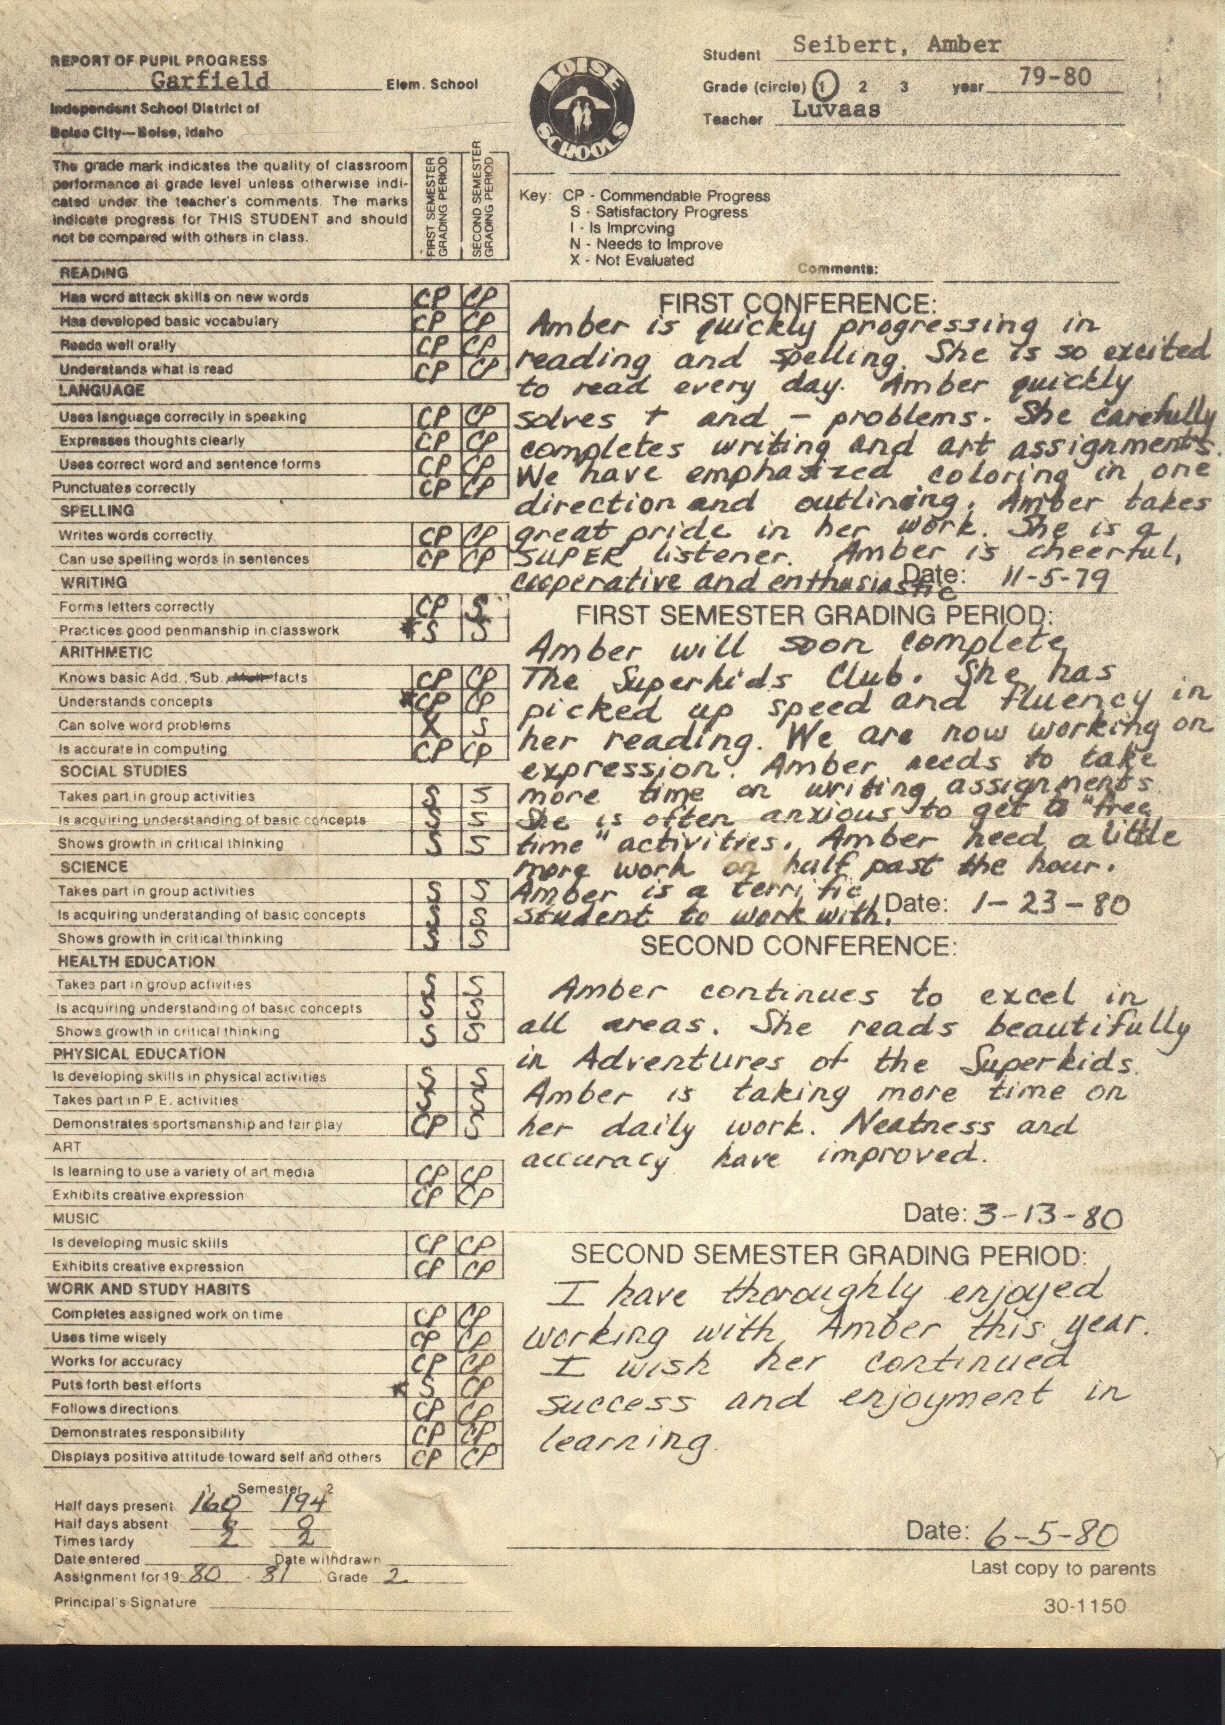 REPORT OF PUPIL PROGRESS
Garfield Elem. School
Independent School District of
Boise City—Boise, Idaho
BOISE SCHOOLS
Student Seibert, Amber
Grade (circle) 1 2 3 year 79-80
Teacher Luvaas
The grade mark indicates the quality of classroom
performance at grade level unless otherwise indi-
cated under the teacher's comments. The marks
indicate progress for THIS STUDENT and should
not be compared with others in class.
FIRST SEMESTER GRADING PERIOD
SECOND SEMESTER GRADING PERIOD
Key: CP - Commendable Progress
S - Satisfactory Progress
I - Is Improving
N - Needs to Improve
X - Not Evaluated
Comments:
READING
Has word attack skills on new words CP CP
Has developed basic vocabulary CP CP
Reads well orally CP CP
Understands what is read CP CP
LANGUAGE
Uses language correctly in speaking CP CP
Expresses thoughts clearly CP CP
Uses correct word and sentence forms CP CP
Punctuates correctly CP CP
SPELLING
Writes words correctly CP CP
Can use spelling words in sentences CP CP
WRITING
Forms letters correctly CP S
Practices good penmanship in classwork *S S
ARITHMETIC
Knows basic Add., Sub., Mult. facts CP CP
Understands concepts *CP CP
Can solve word problems X S
Is accurate in computing CP CP
SOCIAL STUDIES
Takes part in group activities S S
Is acquiring understanding of basic concepts S S
Shows growth in critical thinking S S
SCIENCE
Takes part in group activities S S
Is acquiring understanding of basic concepts S S
Shows growth in critical thinking S S
HEALTH EDUCATION
Takes part in group activities S S
Is acquiring understanding of basic concepts S S
Shows growth in critical thinking S S
PHYSICAL EDUCATION
Is developing skills in physical activities S S
Takes part in P.E. activities S S
Demonstrates sportsmanship and fair play CP S
ART
Is learning to use a variety of art media CP CP
Exhibits creative expression CP CP
MUSIC
Is developing music skills CP CP
Exhibits creative expression CP CP
WORK AND STUDY HABITS
Completes assigned work on time CP CP
Uses time wisely CP CP
Works for accuracy CP CP
Puts forth best efforts * S CP
Follows directions CP CP
Demonstrates responsibility CP CP
Displays positive attitude toward self and others CP CP
1 Semester 2
Half days present 160 194
Half days absent 0
Times tardy 2 2
Date entered Date withdrawn
Assignment for 19 80 - 81 Grade 2
Principal's Signature
FIRST CONFERENCE:
Amber is quickly progressing in
reading and spelling. She is so excited
to read every day. Amber quickly
solves + and - problems. She carefully
completes writing and art assignments.
We have emphasized coloring in one
direction and outlining. Amber takes
great pride in her work. She is a
SUPER listener. Amber is cheerful,
cooperative and enthusiastic
Date: 11-5-79
FIRST SEMESTER GRADING PERIOD:
Amber will soon complete
The Superkids Club. She has
picked up speed and fluency in
her reading. We are now working on
expression. Amber needs to take
more time on writing assignments.
She is often anxious to get to "free
time" activities. Amber need a little
more work on half past the hour.
Amber is a terrific
student to work with.
Date: 1-23-80
SECOND CONFERENCE:
Amber continues to excel in
all areas. She reads beautifully
in Adventures of the Superkids.
Amber is taking more time on
her daily work. Neatness and
accuracy have improved.
Date: 3-13-80
SECOND SEMESTER GRADING PERIOD:
I have thoroughly enjoyed
working with Amber this year.
I wish her continued
success and enjoyment in
learning.
Date: 6-5-80
Last copy to parents
30-1150